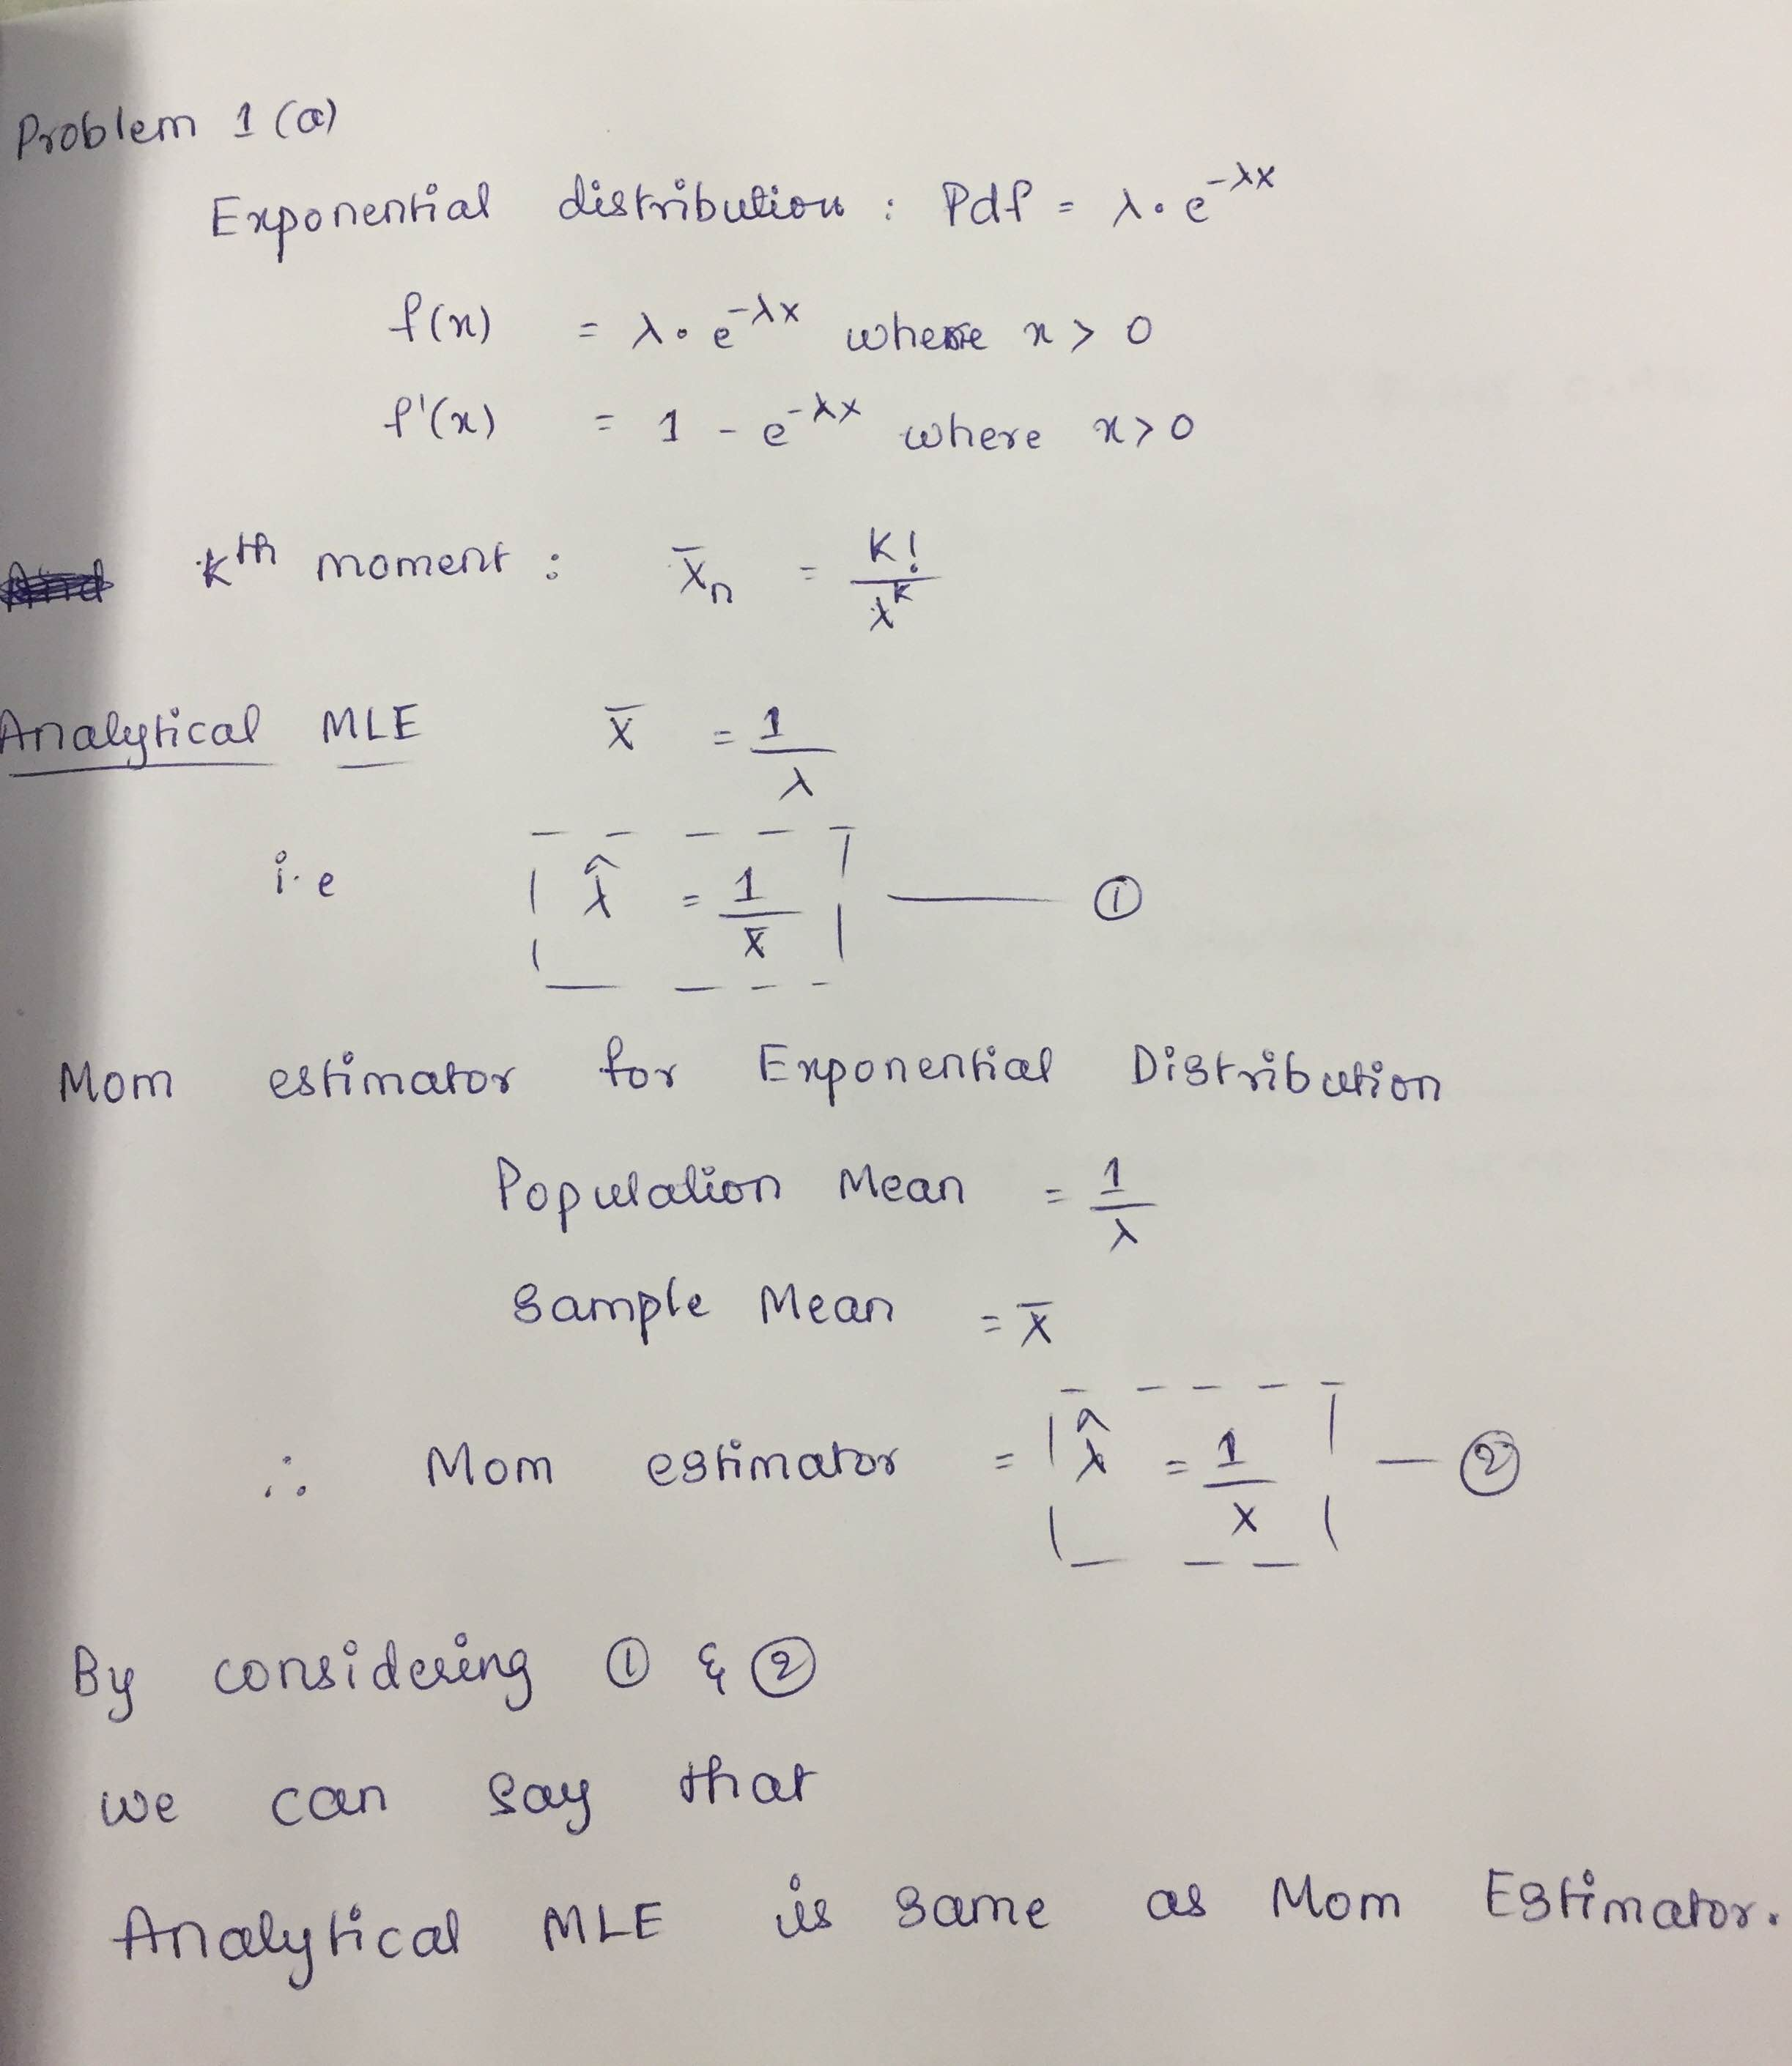 Problem 1 (a)
Exponential distribution : Pdf = λ・e^-λx
f(x) = λ・e^-λx where x > 0
f'(x) = 1 - e^-λx where x > 0
kth moment : X̄n = K! / λ^K
Analytical MLE X̄ = 1 / λ
i.e λ̂ = 1 / X̄ —— ①
Mom estimator for Exponential Distribution
Population Mean = 1 / λ
Sample Mean = X̄
∴ Mom estimator = λ̂ = 1 / X — ②
By considering ① & ②
we can say that
Analytical MLE is same as Mom Estimator.